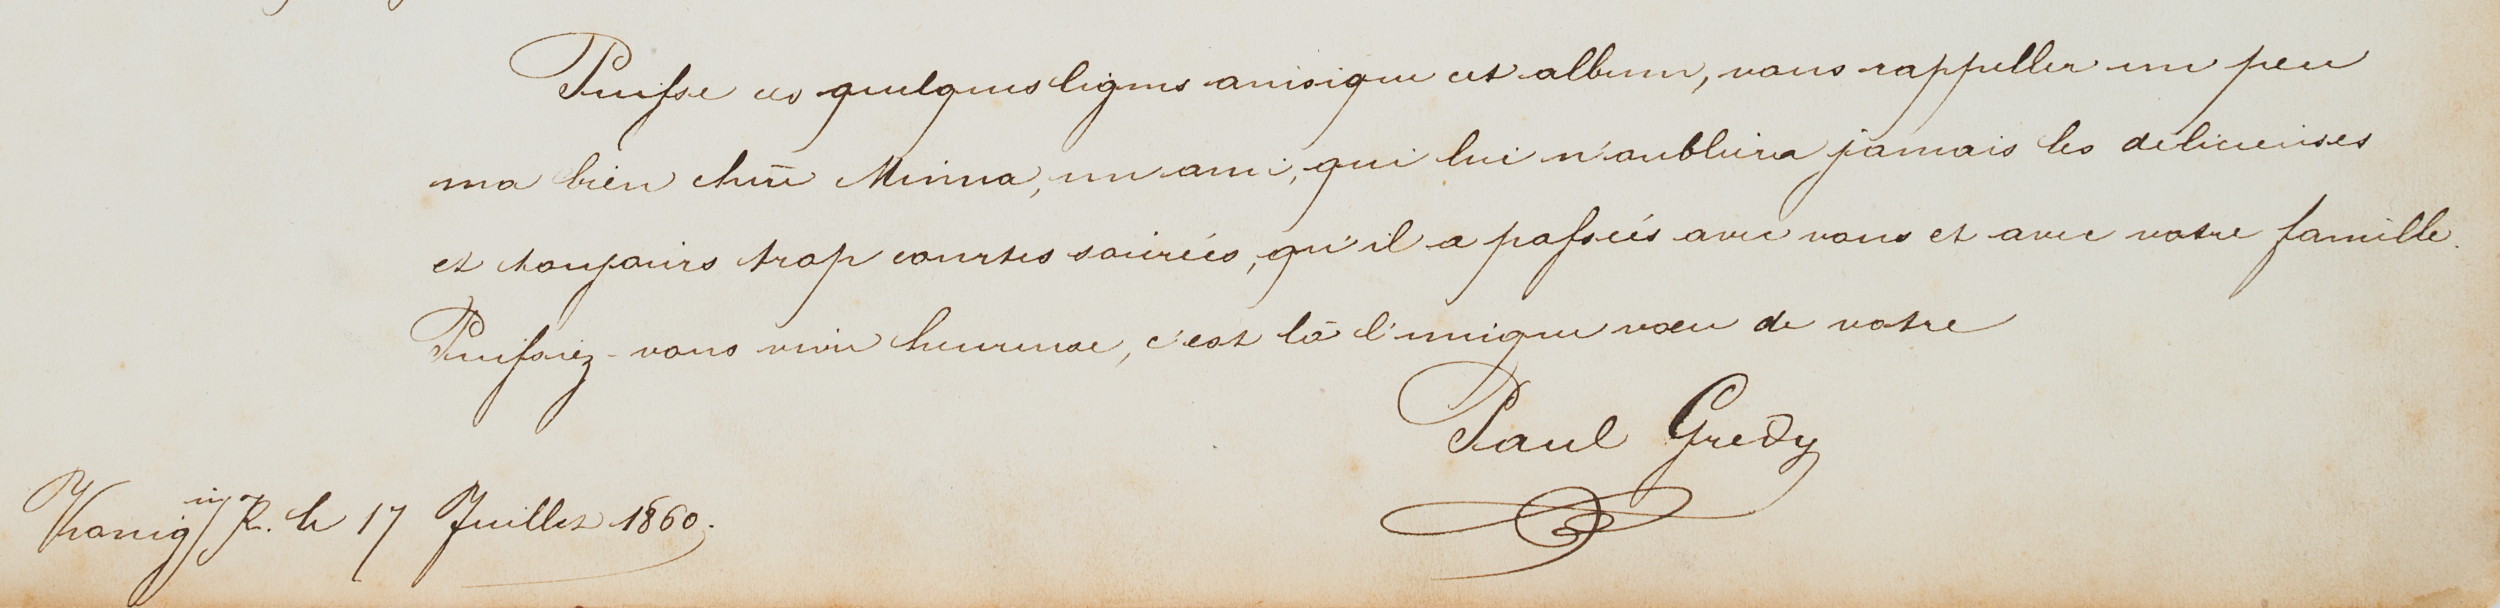 Puisse ces quelques lignes ainsi que cet album, vous rappeller un peu
ma bien chère Minna, un ami, qui lui n'oubliera jamais les delicieuses
et toujours trop courtes soirées, qu'il a passées avec vous et avec votre famille.
Puissiez-vous vivre heureuse, c'est là l'unique voeu de votre
Paul Gredy
R. le 17 Juillet 1860.